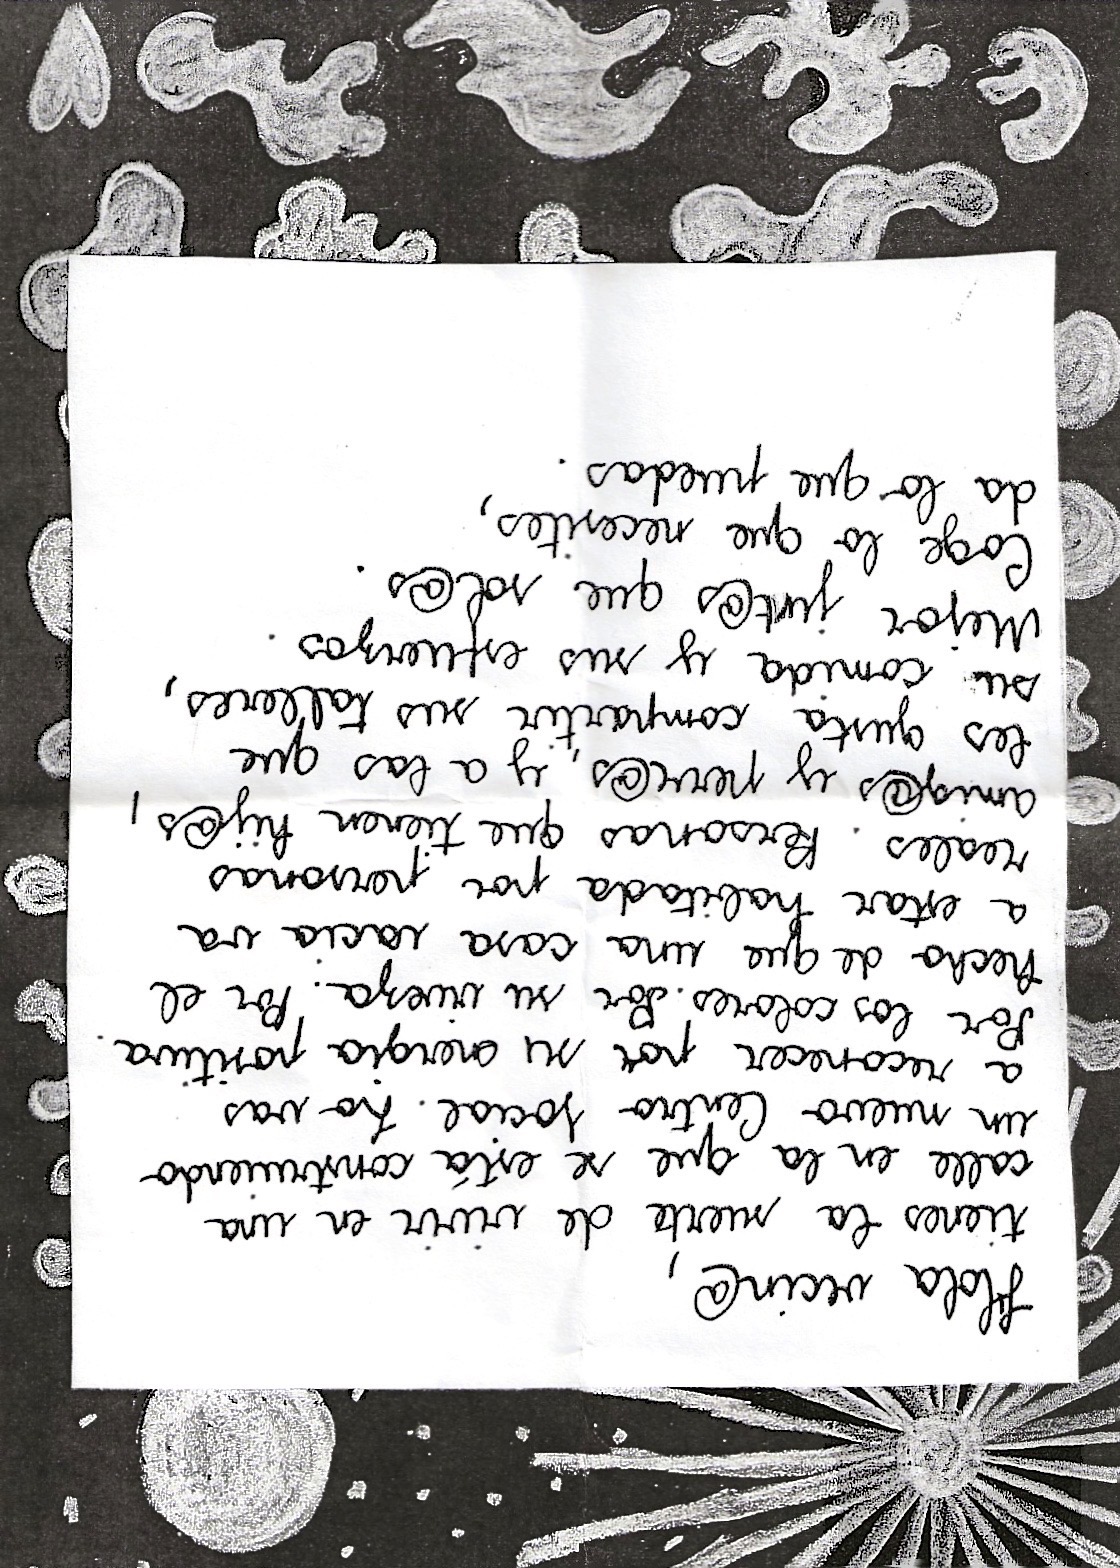 Hola vecin@,
tienes la suerte de vivir en una
calle en la que se está construiendo
un nuevo Centro Social. Lo vas
a reconocer por su energía positiva.
Por los colores. Por su viveza. Por el
hecho de que una casa vacia va
a estar habitada por personas
reales. Personas que tienen hij@s,
amig@s y perr@s, y a las que
les gusta compartir sus talleres,
su comida y sus esfuerzos.
Mejor junt@s que sol@s.
Coge lo que necesites,
da lo que puedas.